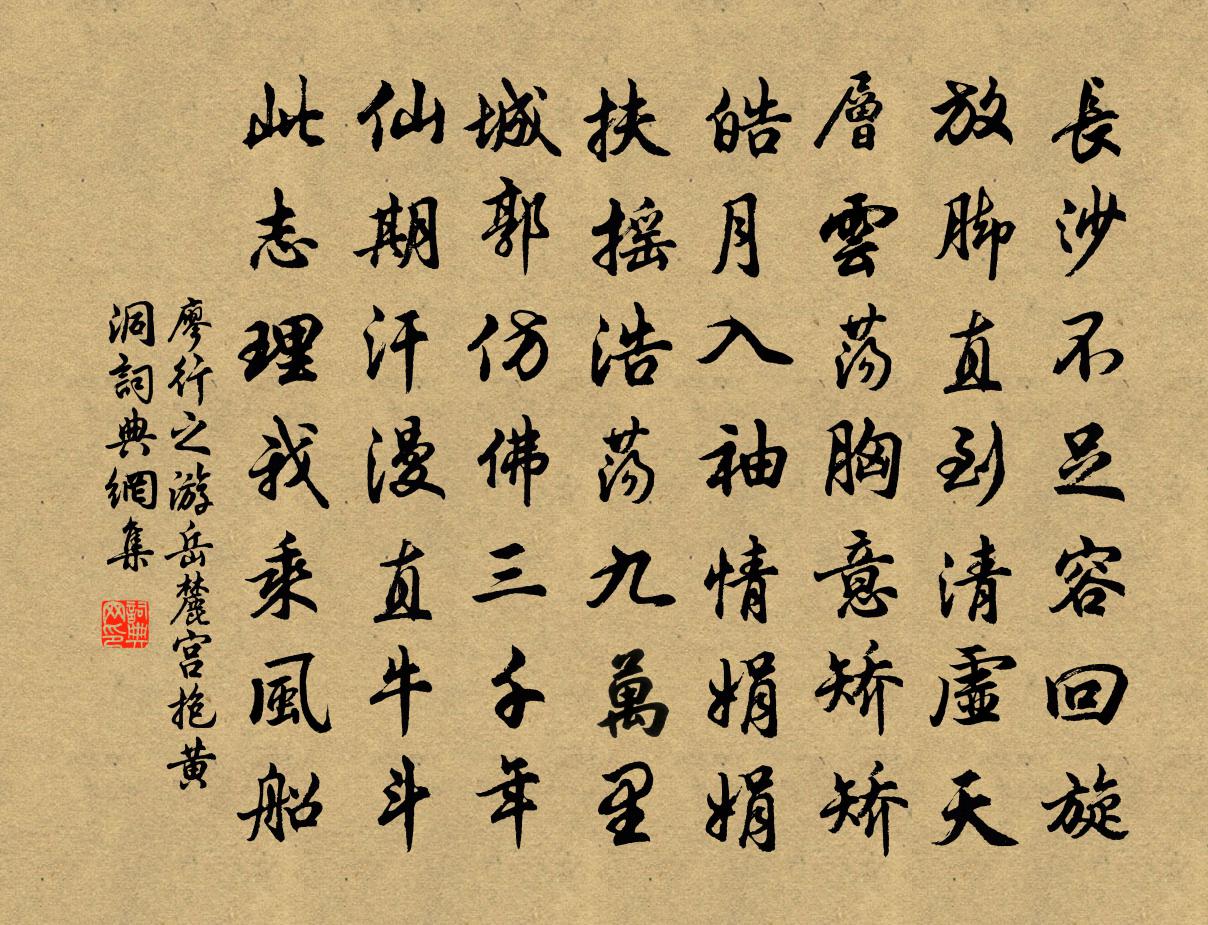 長沙不足容回旋
放脚直到清虛天
層雲蕩胸意矯矯
皓月入袖情娟娟
扶摇浩蕩九萬里
城郭仿佛三千年
仙期汗漫直牛斗
此志理我乘風船
廖行之游岳麓宫抱黄
洞詞典網集
詞典网印